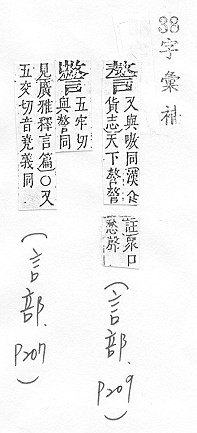 38
字彙補
謷 又與嗷同漢食
貨志天下謷謷
註眾口
愁聲
(言部.
P209)
五牢切
與謷同
見廣雅釋言篇○又
五交切音堯義同
(言部.
P207)